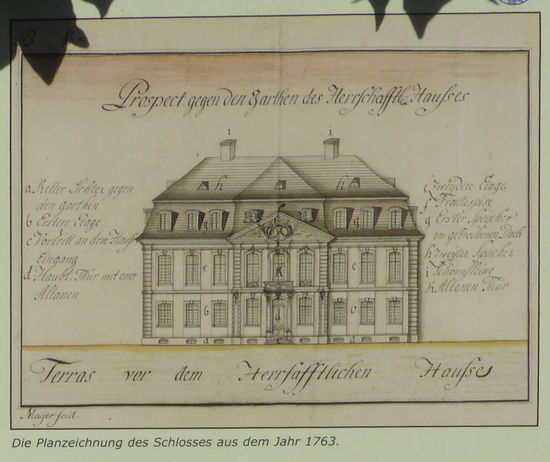 B
Prospect gegen den Garthen des Herrschafftl. Hausses
i i
h h
a. Keller Lichter gegen
den Garthen
b Erstere Etage
c Vortritt an dem Hauß
Eingang
d Haubt Thür mit einer
Altanen
e zweydere Etage
f Frontespise
g Erster Speicher
im gebrochenen Dach
h zweiter Speicher
i Schornsteine
k Altanen Thür
g g
f
e k e
b d b
Terras vor dem Herrsafftlichen Hausse
Mayer fecit
Die Planzeichnung des Schlosses aus dem Jahr 1763.